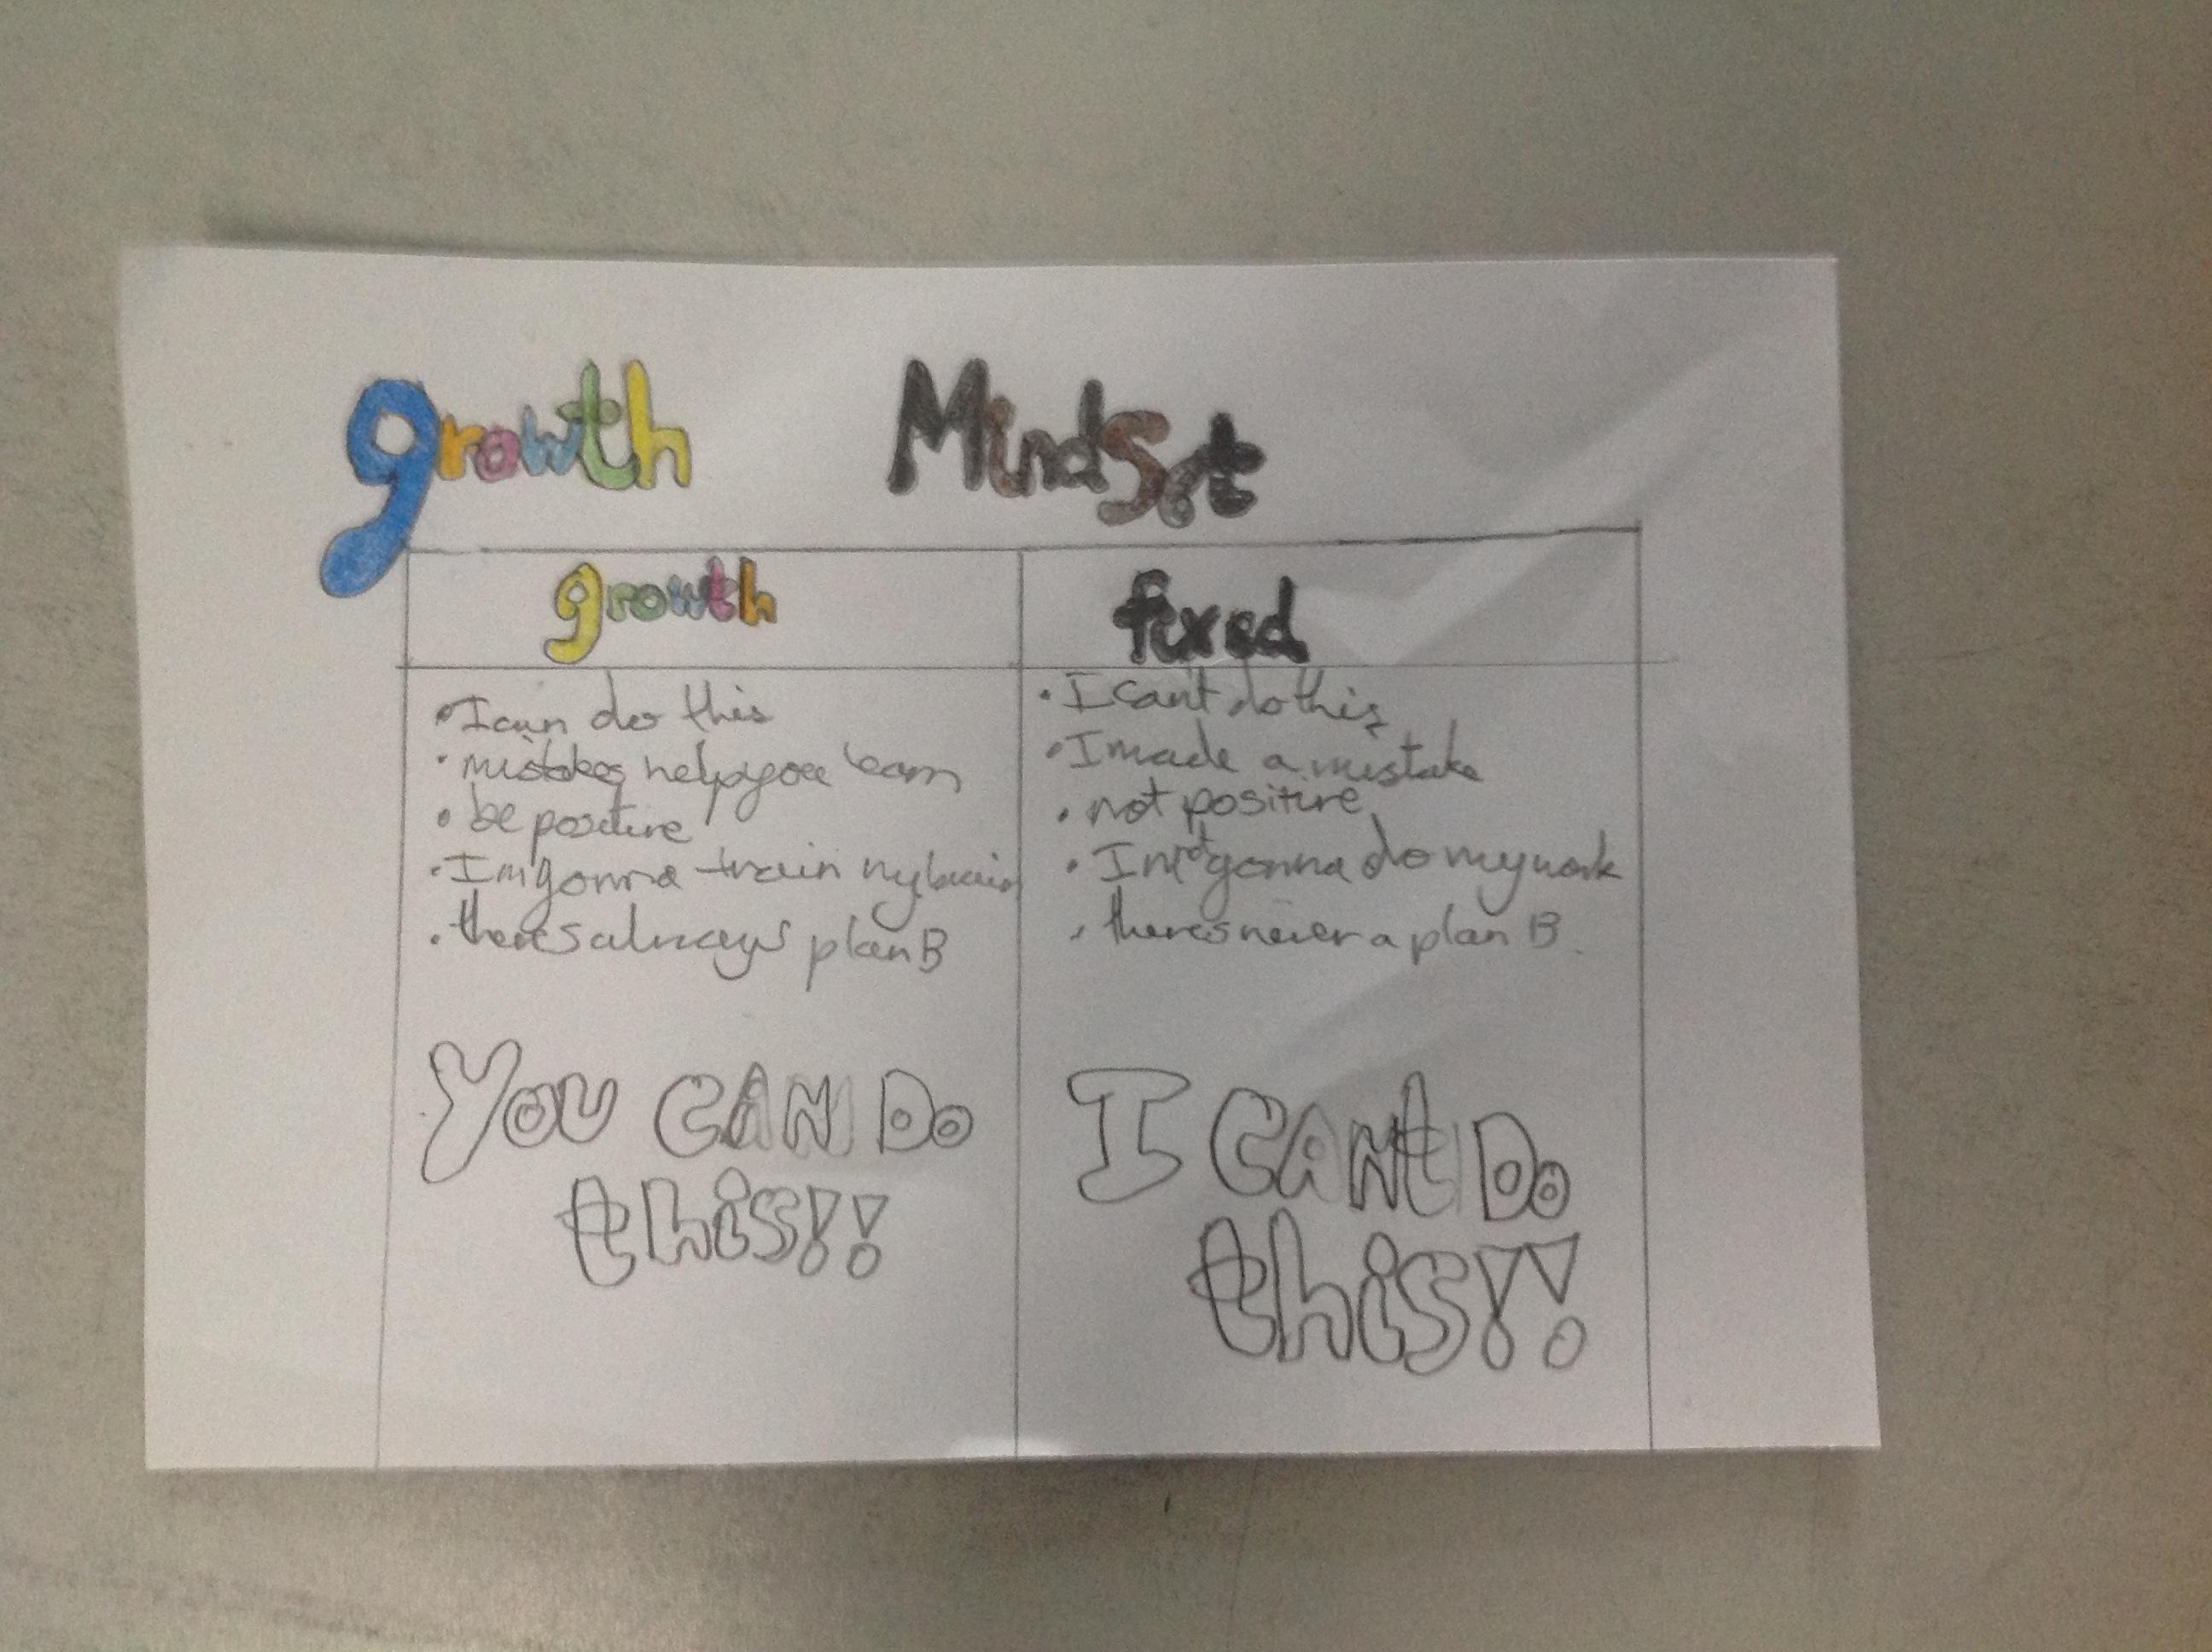 growth MindSet
growth
• I can do this
• mistakes help you learn
• be positive
• Im gonna train my brain
• theres always plan B
You CAN Do
this!!
fixed
• I cant do this
• I made a mistake
• not positive
• Im not gonna do my work
• theres never a plan B.
I CANt Do
this!!